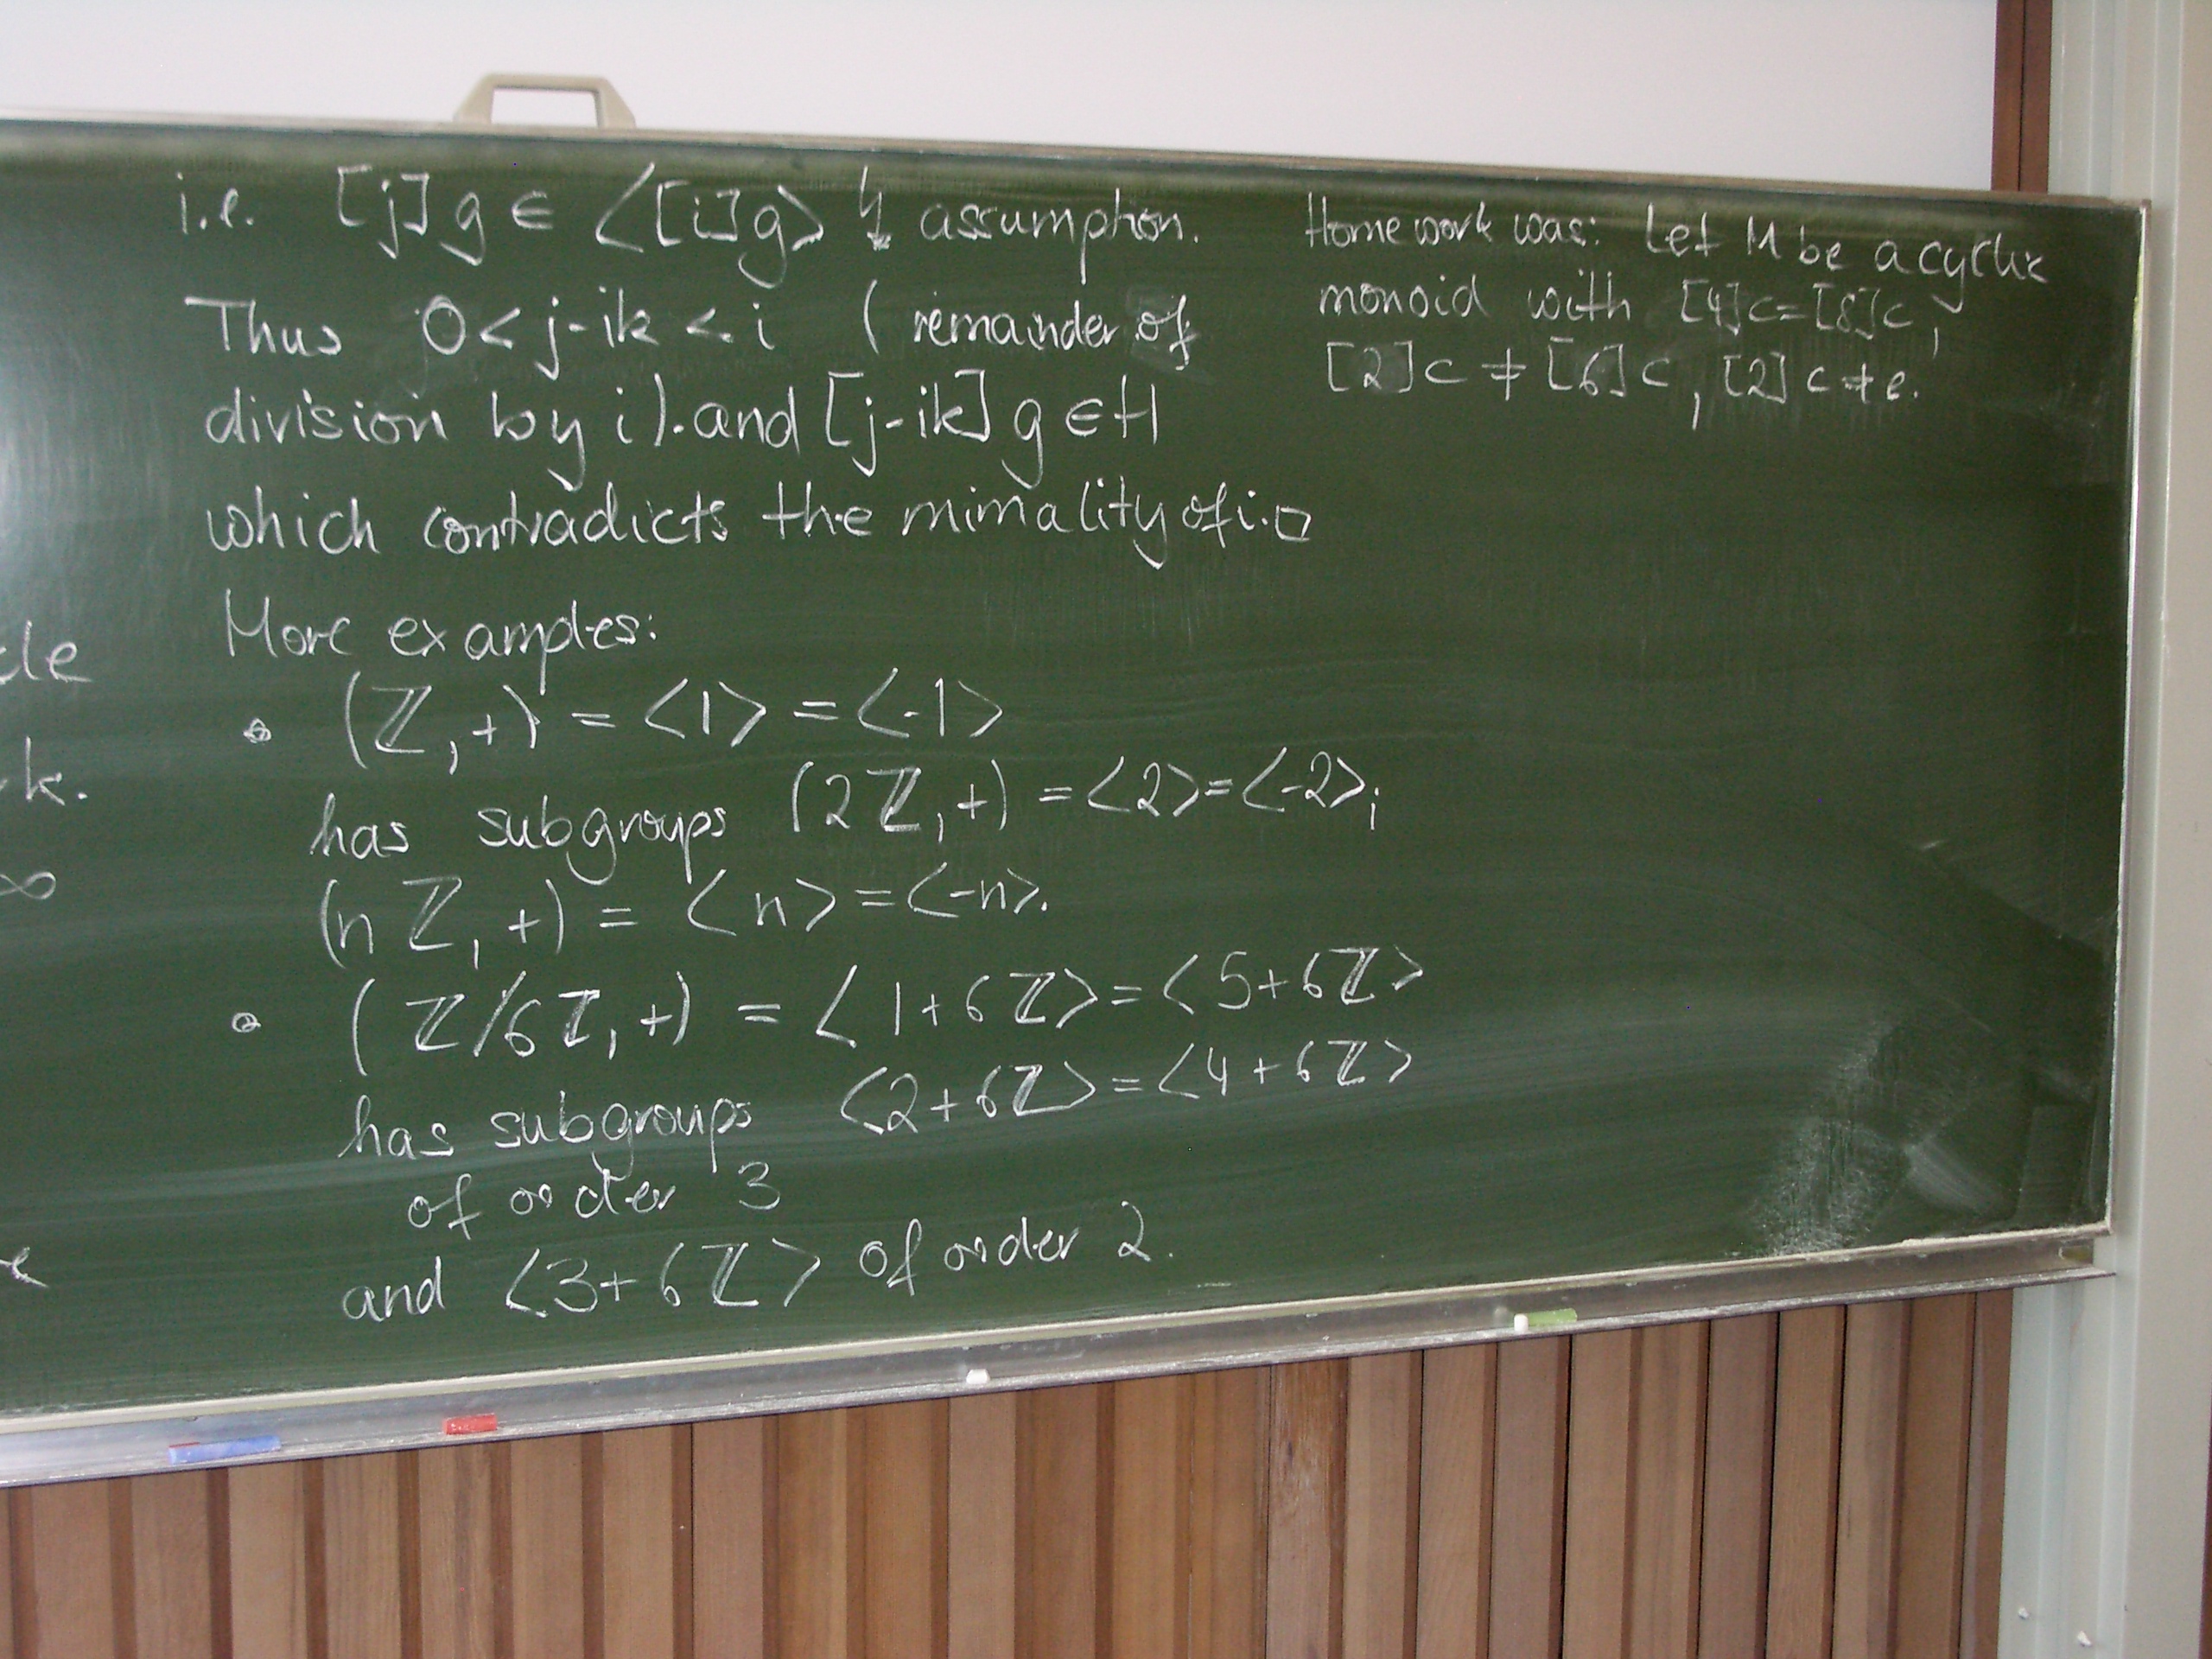 i.e. [j]g ∈ ⟨[i]g⟩ ↯ assumption.
Thus 0 < j-ik < i (remainder of
division by i). and [j-ik] g ∈ H
which contradicts the mimality of i. □
More examples:
• (ℤ, +) = ⟨1⟩ = ⟨-1⟩
has subgroups (2ℤ, +) = ⟨2⟩ = ⟨-2⟩;
(nℤ, +) = ⟨n⟩ = ⟨-n⟩.
• (ℤ/6ℤ, +) = ⟨1+6ℤ⟩ = ⟨5+6ℤ⟩
has subgroups ⟨2+6ℤ⟩ = ⟨4+6ℤ⟩
of order 3
and ⟨3+6ℤ⟩ of order 2.
Homework was: Let M be a cyclic
monoid with [4]c=[8]c,
[2]c ≠ [6]c, [2]c ≠ e.
k.
∞